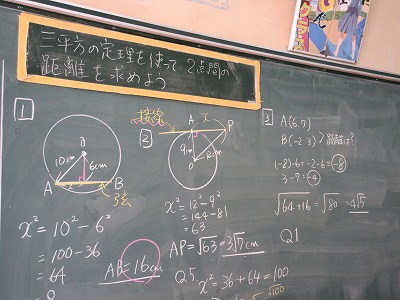 三平方の定理を使って 2点間の
距離を求めよう
1
O
10cm
6cm
A
B
弦
x² = 10² - 6²
= 100 - 36
= 64
AB = 16cm
2
接線
A
x
P
9cm
12cm
O
x² = 12² - 9²
= 144 - 81
= 63
AP = √63 = 3√7cm
Q5
x² = 36 + 64 = 100
3
A(6.7)
B(-2 3) > 距離は?
(-2)-6 = -2-6 = -8
3-7 = -4
√64+16 = √80 = 4√5
Q1